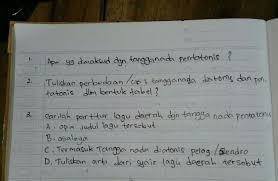 1. Apa yg dimaksud dgn tangganada pentatonis ?
2. Tuliskan perbedaan / tangganada diatonis dan pen
tatonis dlm bentuk tabel ?
3. Carilah partitur lagu daerah dgn tangga nada pentatonis
A. apa judul lagu tersebut
B. asalnya
C. Termasuk Tangga nada diatonis pelog / Slendro
D. Tuliskan arti dari syair lagu daerah tersebut